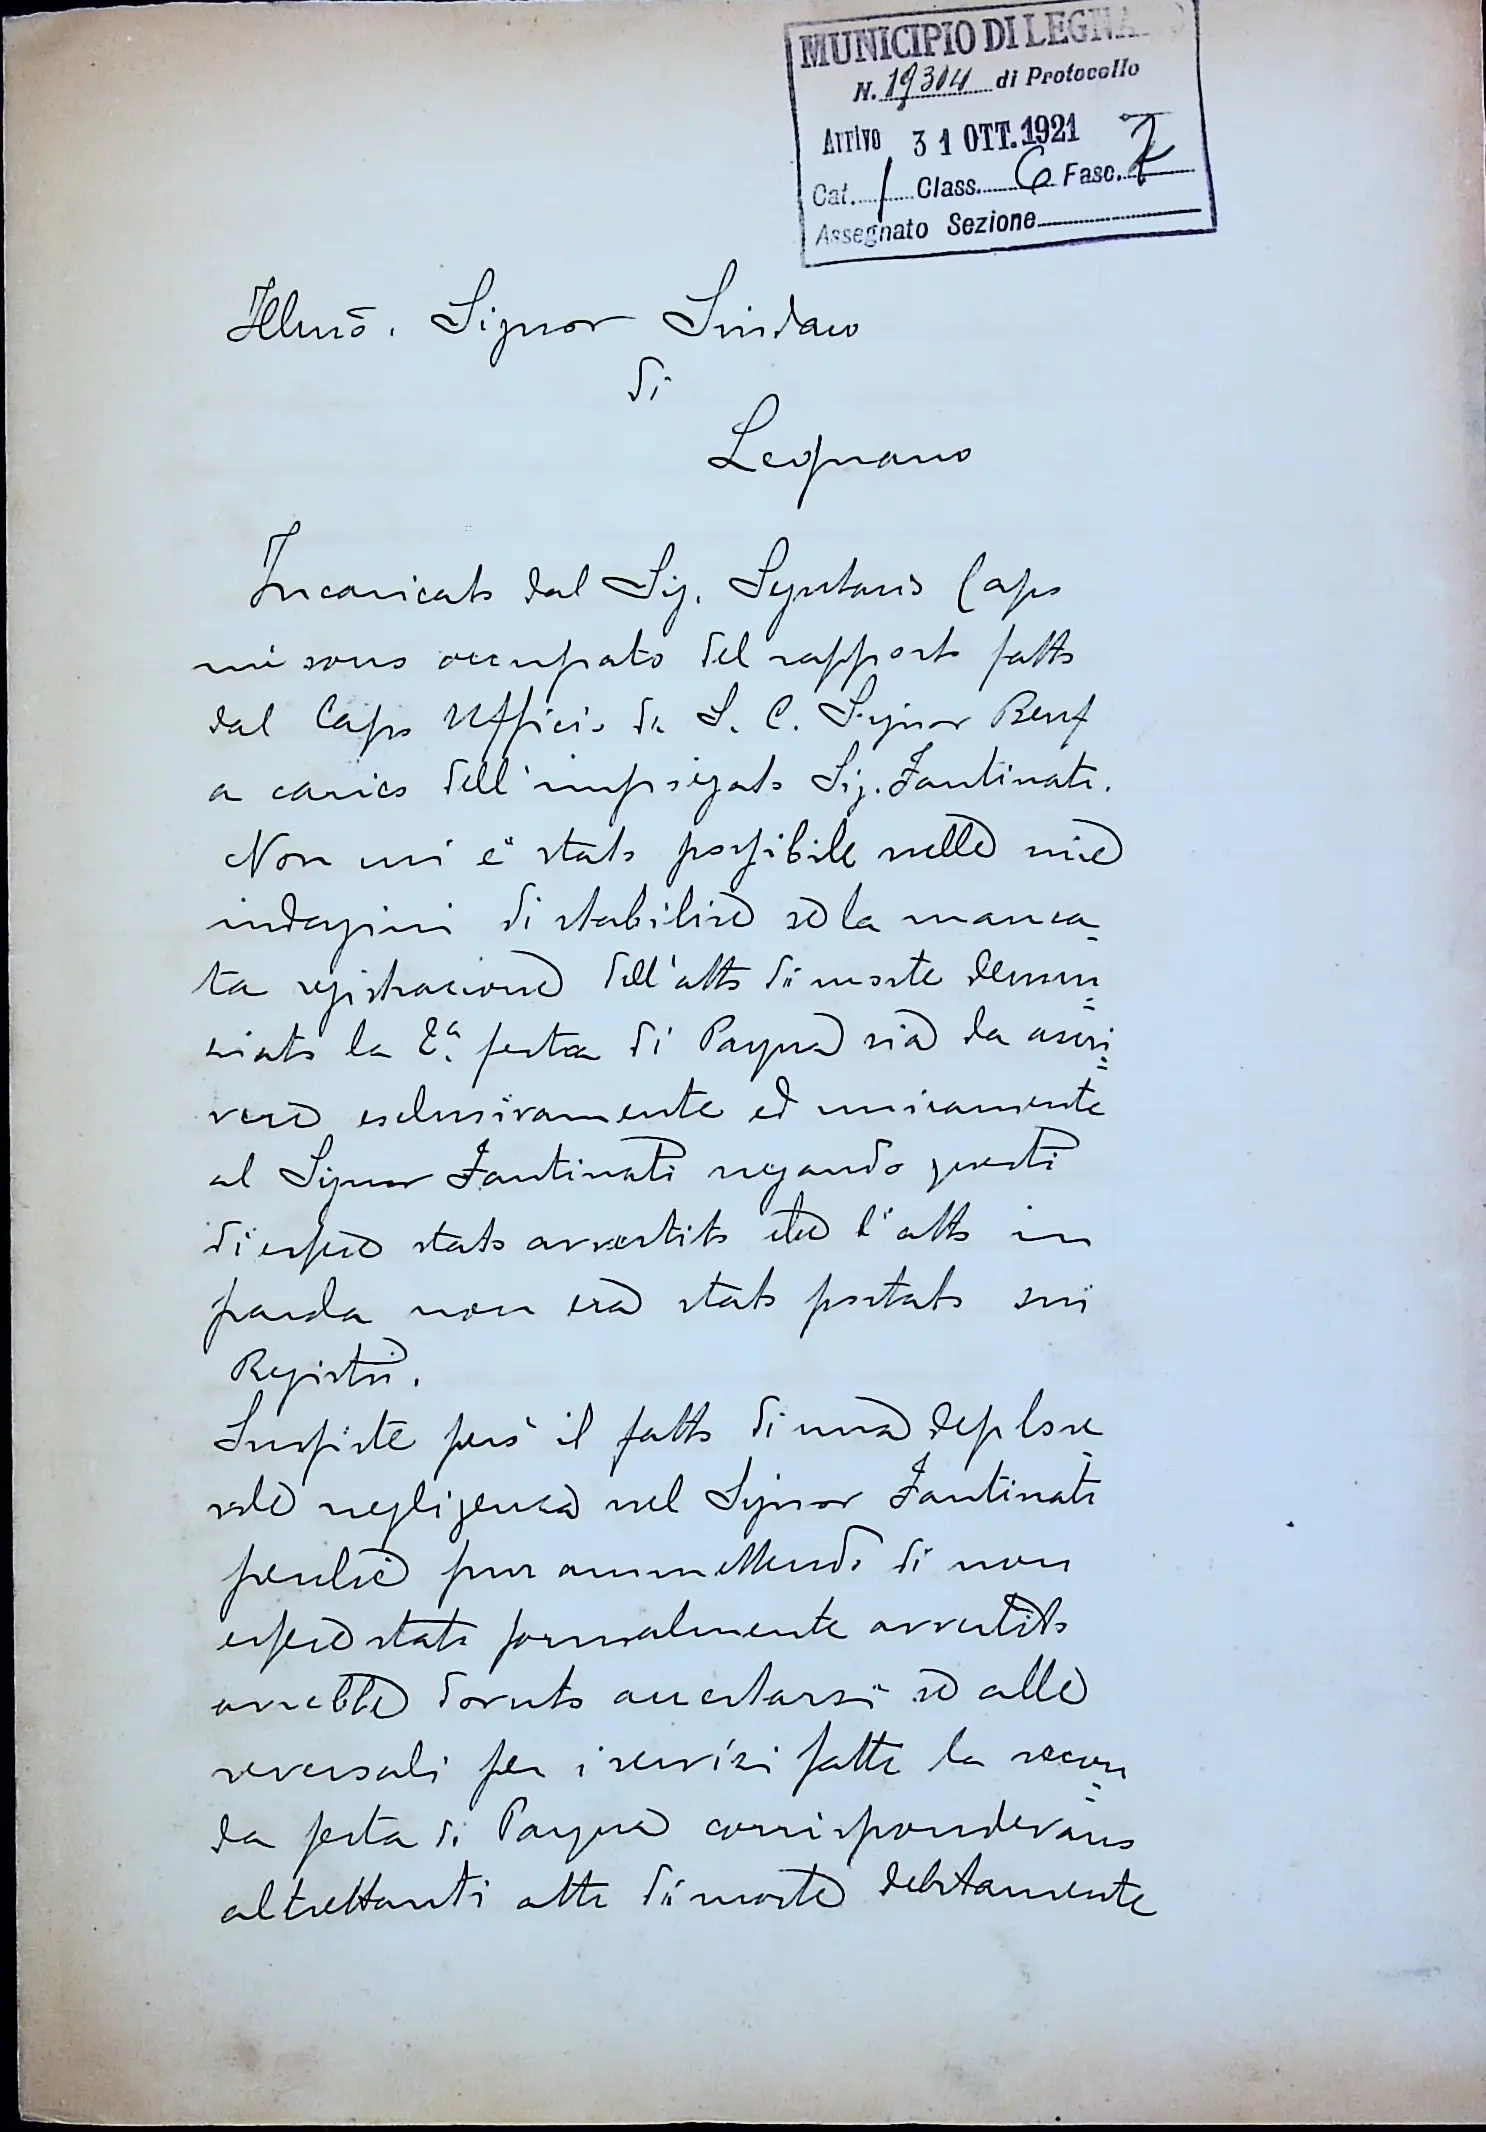 MUNICIPIO DI LEGNANO
N. 19304 di Protocollo
Arrivo 31 OTT. 1921
Cat. 1 Class. 6 Fasc. 2
Assegnato Sezione
Illmo. Signor Sindaco
di
Legnano
Incaricato dal Sig. Segretario Capo
mi sono occupato del rapporto fatto
dal Capo Ufficio di S. C. Signor
a carico dell'impiegato Sig. Fantinati.
Non mi è stato possibile nelle mie
indagini di stabilire se la manca-
ta registrazione dell'atto di morte denun=
ziato la 2a. festa di Pasqua sia da ascri=
vere esclusivamente ed unicamente
al Signor Fantinati negando questi
di essere stato avvertito che l'atto in
parola non era stato portato sui
Registri.
Sussiste però il fatto di una deplore-
vole negligenza nel Signor Fantinati
perchè pur ammettendo di non
essere stato formalmente avvertito
avrebbe dovuto accertarsi se alle
reversali per i servizi fatti la secon=
da festa di Pasqua corrispondevano
altrettanti atti di morte debitamente